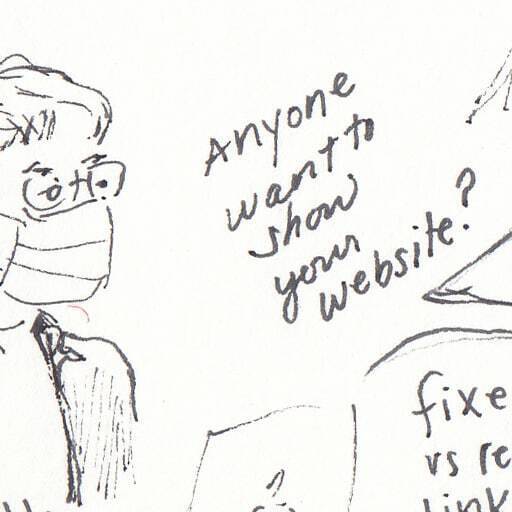 Anyone
want to
show
your
website?
fixe
vs re
link